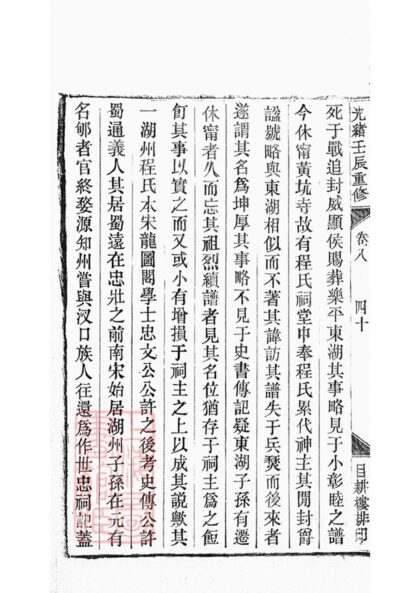 光緒壬辰重修 卷八 四十 目耕樓排印
死于戰追封威顯侯賜葬樂平東湖其事略見于小彰睦之譜
今休甯黃坑寺故有程氏祠堂中奉程氏累代神主其閒封爵
諡號略與東湖相似而不著其諱訪其譜失于兵燹而後來者
遂謂其名爲坤厚其事略不見于史書傳記疑東湖子孫有遷
休甯者久而忘其祖烈續譜者見其名位猶存于祠主爲之餖
飣其事以實之而又或小有增損于祠主之上以成其說歟其
一湖州程氏本宋龍圖閣學士忠文公公許之後考史傳公許
蜀通義人其居蜀遠在忠壯之前南宋始居湖州子孫在元有
名郇者官終婺源知州嘗與汊口族人往還爲作世忠祠記蓋